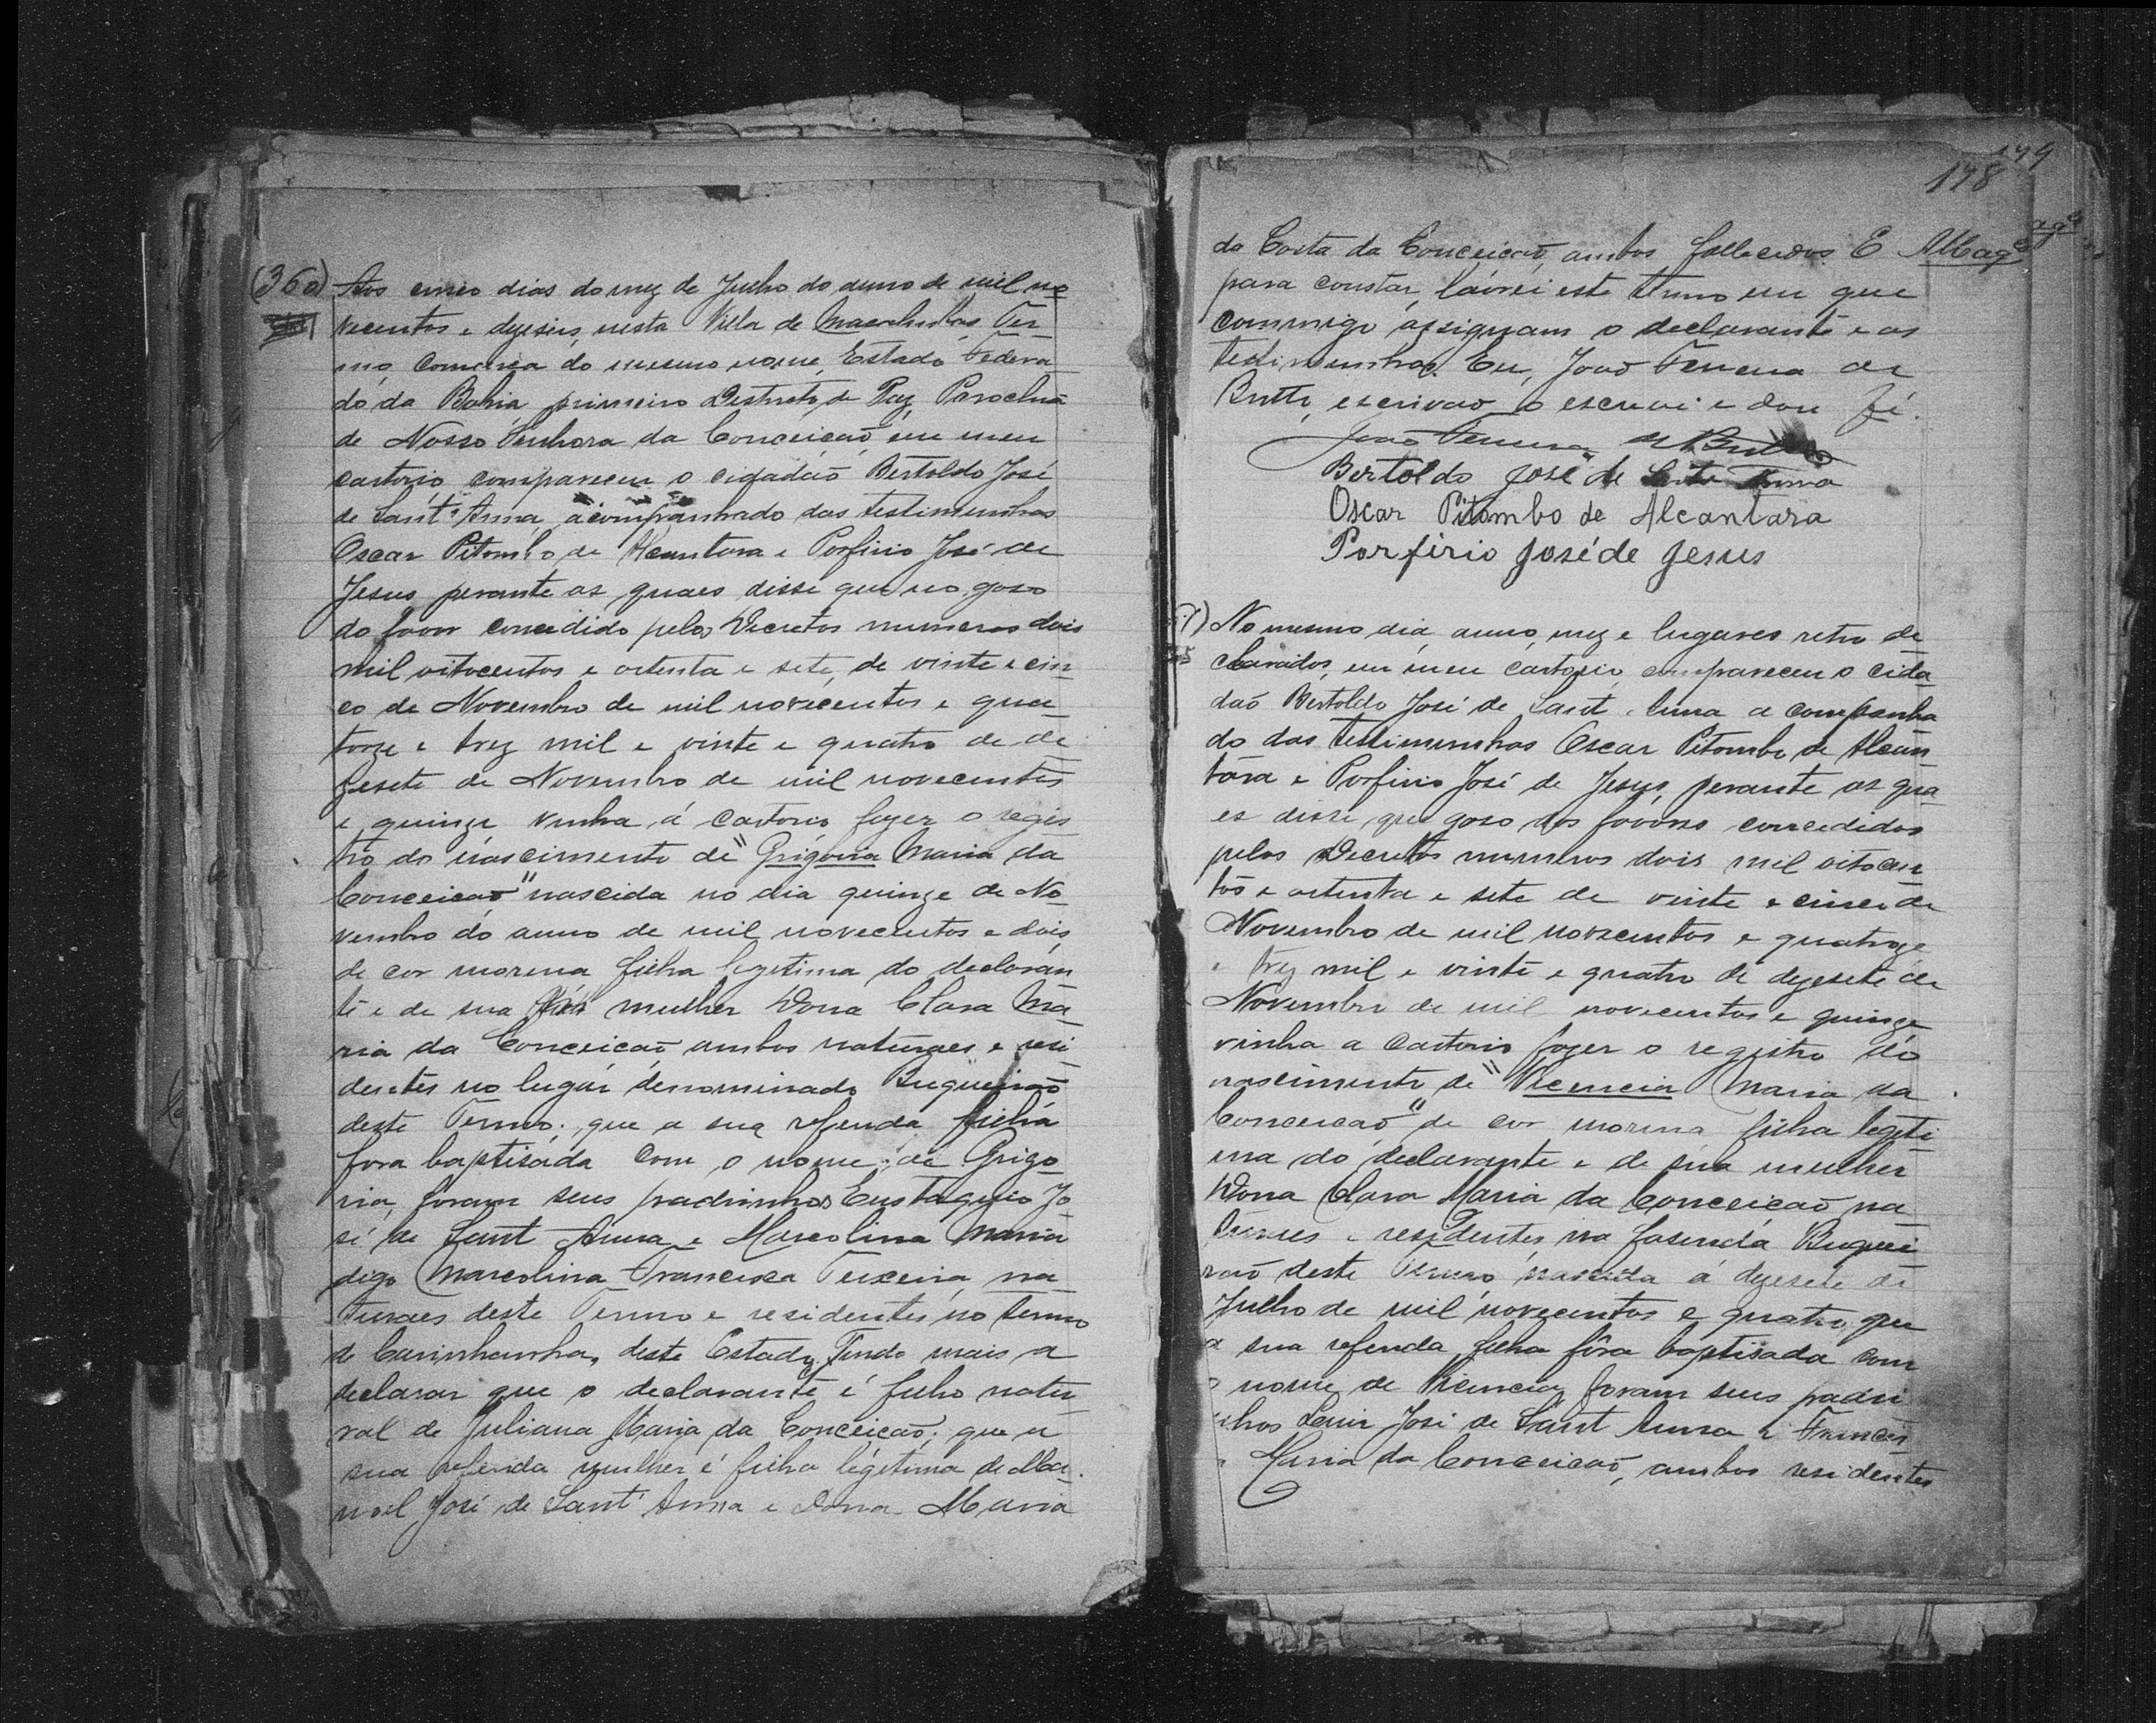 (360) Aos cinco dias do mez de Julho do anno de mil no
vecentos e dezeseis, nesta Villa de Macahubas, Ter
mo, Comarca do mesmo nome, Estado Federa
do da Bahia, primeiro Destricto de Paz, Parochia
de Nossa Senhora da Conceição, em meu
cartorio compareceu o cidadão Bertoldo José
de Sant'Anna, acompanhado das testimunhas
Oscar Pitombo de Alcantara e Porfirio José de
Jesus perante as quaes disse que no goso
do favor concedido pelos Decretos numeros dois
mil oitocentos e oitenta e sete, de vinte e cin
co de Novembro de mil novecentos e qua
torze e trez mil e vinte e quatro de de
zesete de Novembro de mil novecentos
e quinze vinha á cartorio fazer o regis
tro do nascimento de "Grigoria Maria da
Conceicão" nascida no dia quinze de No
vembro do anno de mil novecentos e dois,
de cor morena filha legetima do declaran
te e de sua mulher Dona Clara Ma
ria da Conceicão ambos naturaes e resi
dentes no lugar denominado Buqueirão
deste Termo; que a sua referida filha
fora baptisada com o nome de Grigo
ria, foram seus padrinhos Eustaquio Jo
sé de Sant Anna e Marcolina Maria
digo Marcolina Francisca Teixeira, na
turaes deste Termo e residentes no termo
de Carinhanha, deste Estado. Tendo mais a
declarar que o declarante é filho natu
ral de Juliana Maria da Conceicão; que a
sua referida mulher é filha legetima de Ma
noel José de Sant'Anna e Dona Maria
148
149
da Costa da Conceicão, ambos fallecidos. E
para constar, lavrei este termo em que
commigo assignam o declarante e as
testimunhas. Eu, João Ferreira de
Britto, escrivão o escrevi e dou fé.
João Ferreira de Britto
Bertoldo José de Santa Anna
Oscar Pitombo de Alcantara
Porfirio José de Jesus
No mesmo dia, anno, mez e lugares retro de
clarados, em meu cartorio, compareceu o cida
dão Bertoldo José de Sant Anna acompanha
do das testimunhas Oscar Pitombo de Alcan
tara e Porfirio José de Jesus, perante as qua
es disse que goso dos favores concedidos
pelos Decretos numeros dois mil oitocen
tos e oitenta e sete de vinte e cinco de
Novembro de mil novecentos e quatroze
e trez mil e vinte e quatro de dezesete de
Novembro de mil novecentos e quinze
vinha a Cartorio fazer o registro do
nascimento de "Vicencia Maria da
Conceicão" de cor morena filha legeti
ma do declarante e de sua mulher
Dona Clara Maria da Conceicão na
turaes e residentes na fasenda Buquei
rão deste Termo, nascida á dezesete de
Julho de mil novecentos e quatro, que
a sua referida filha fôra baptisada com
o nome de Vicencia, foram seus padri
nhos José de Sant Anna e Francis
Maria da Conceicão, ambos residentes